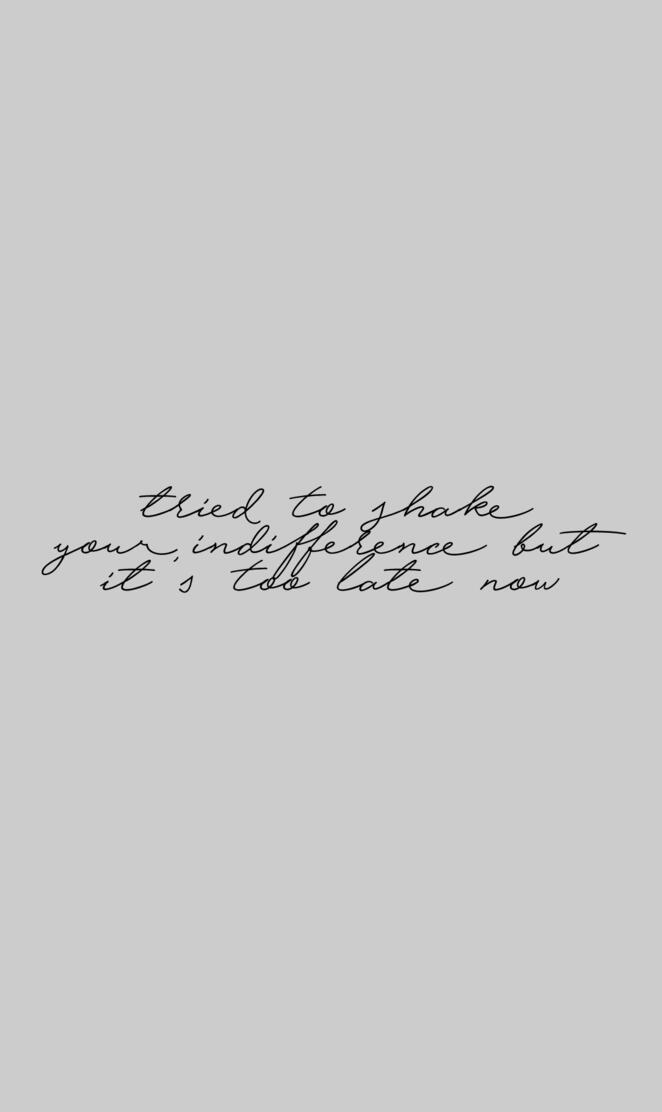 tried to shake
your indifference but
it's too late now